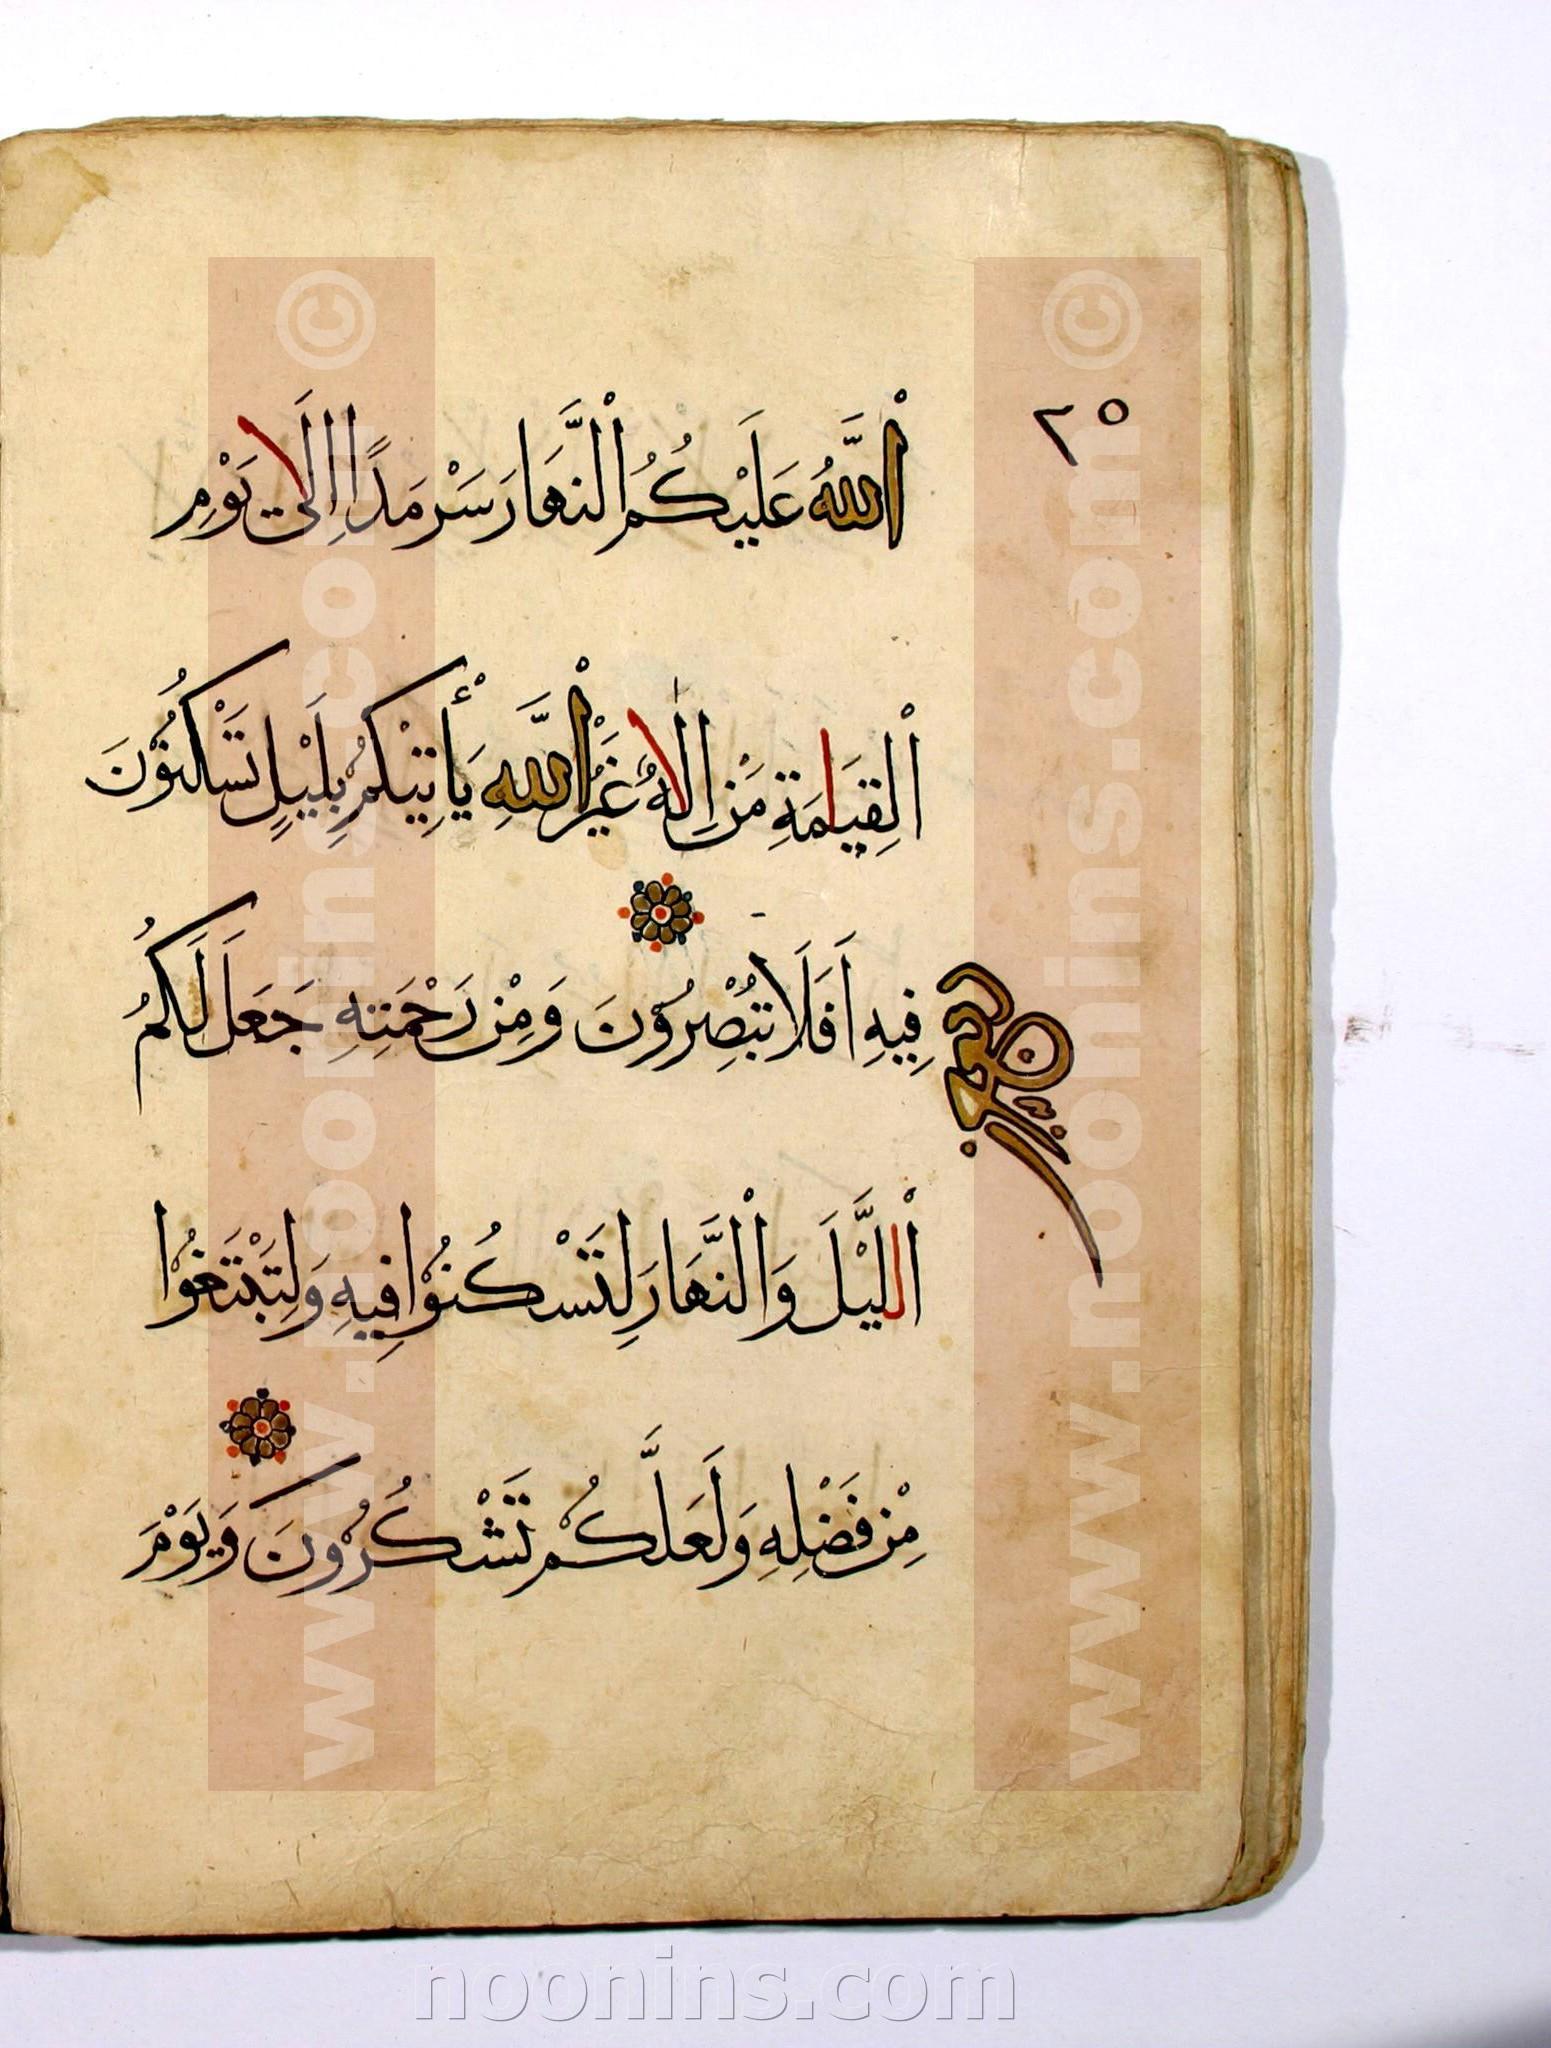 ٢٥
اَللَّهُ عَلَيْكُمُ الْنَّهَارَ سَرْمَدًا اِلَى يَوْمِ
الْقِيَامَةِ مَنْ اِلٰهٌ غَيْرُ اللَّهِ يَأْتِيْكُمْ بِلَيْلٍ تَسْكُنُوْنَ
فِيهِ اَفَلَا تُبْصِرُوْنَ وَمِنْ رَحْمَتِهِ جَعَلَ لَكُمُ
الْلَّيْلَ وَالْنَّهَارَ لِتَسْكُنُوْا فِيهِ وَلِتَبْتَغُوْا
مِنْ فَضْلِهِ وَلَعَلَّكُمْ تَشْكُرُوْنَ وَيَوْمَ
www.noonins.com ©
www.noonins.com ©
noonins.com